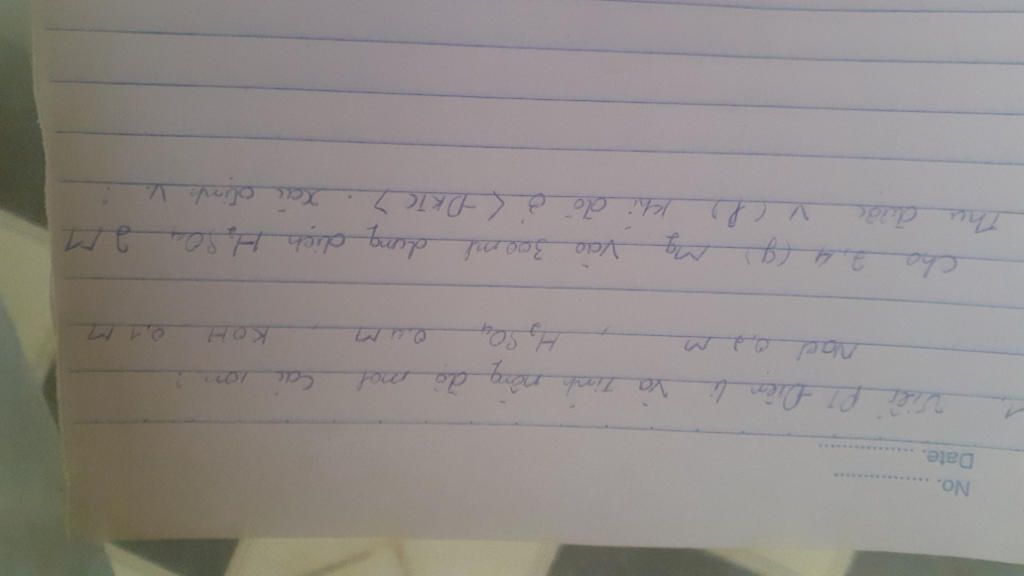 No. ................
Date. ................
1. Viết PT Điện li và tính nồng độ mol các ion?
NaCl 0,2M , H2SO4 0,4M , KOH 0,1M
Cho 2,4 (g) Mg vào 300ml dung dịch H2SO4 2M
Thu được V (l) khí đó ở <ĐKTC>. Xác định V?